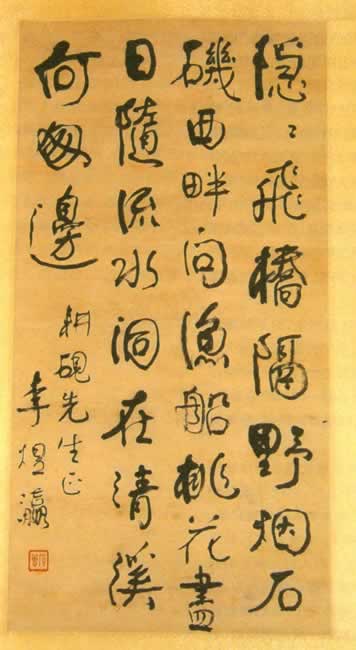 隱〻飛橋隔野烟石
磯西畔问漁船桃花盡
日隨流水洞在清溪
何處邊
耕硯先生正
李煜瀛